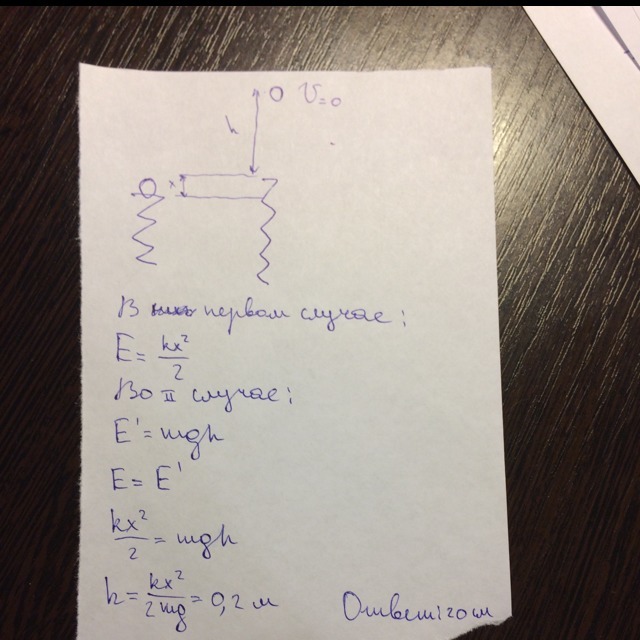 O V=0
h
x
В первом случае:
E = kx²/2
Во II случае:
E' = mgh
E = E'
kx²/2 = mgh
h = kx²/2mg = 0,2 м Ответ: